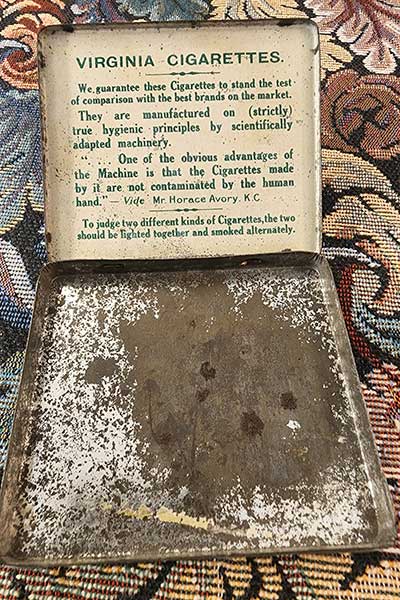 VIRGINIA CIGARETTES.
We guarantee these Cigarettes to stand the test
of comparison with the best brands on the market.
They are manufactured on (strictly)
true hygienic principles by scientifically
adapted machinery.
". . . . One of the obvious advantages of
the Machine is that the Cigarettes made
by it are not contaminated by the human
hand."— Vide Mr Horace Avory, K.C.
To judge two different kinds of Cigarettes, the two
should be lighted together and smoked alternately.